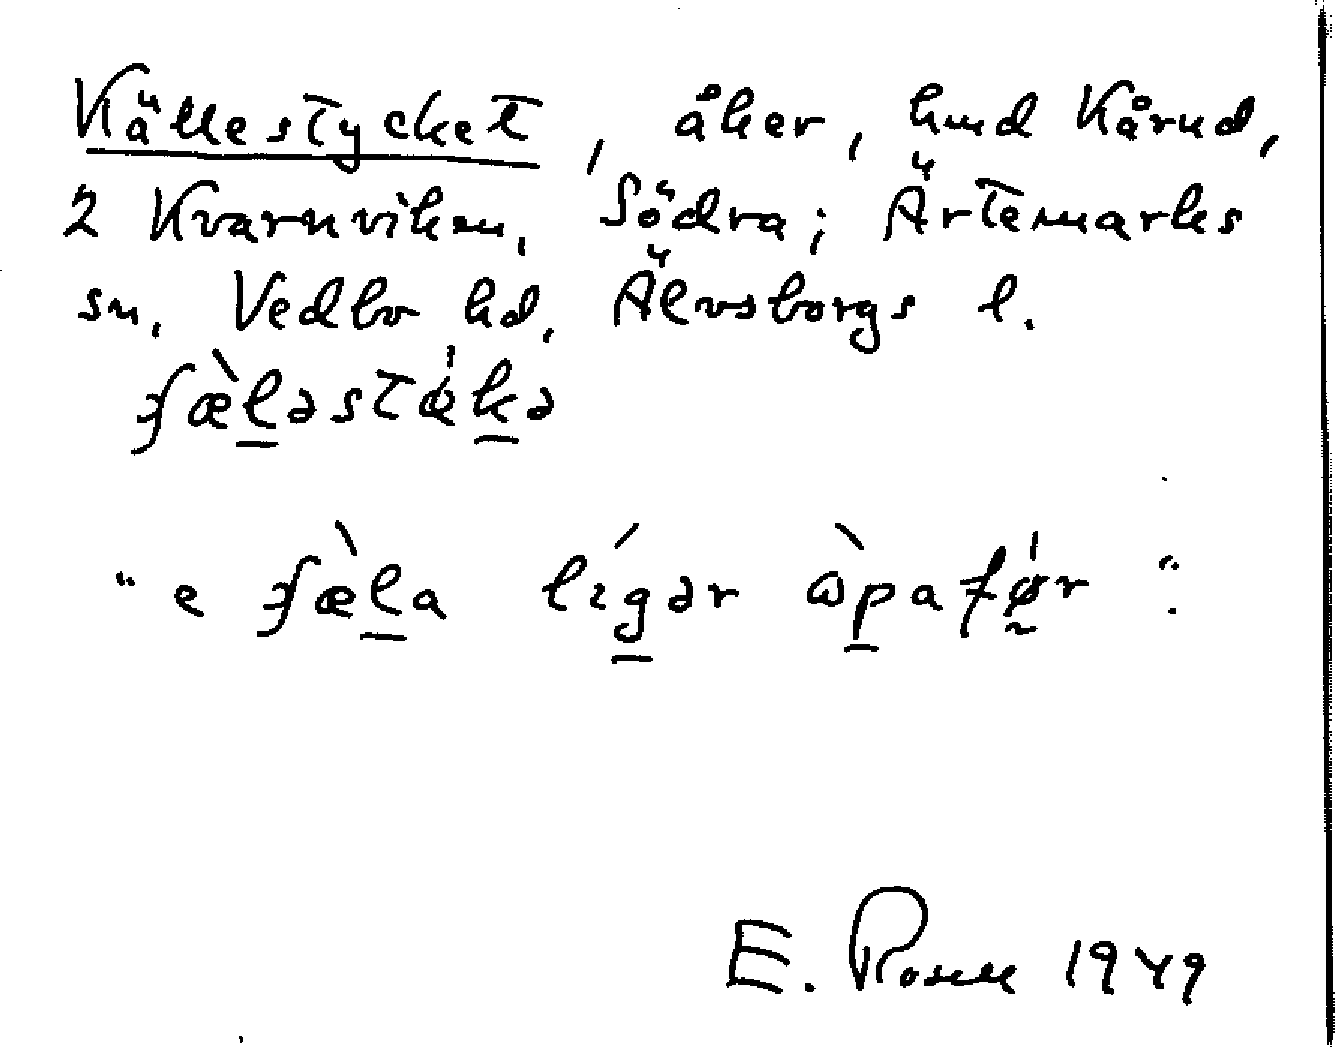 Källestycket, åker, hmd Kårud,
2 Kvarnviken, Södra; Ärtemarks
sn, Vedbo hd, Älvsborgs l.
ʃæ̀l̲əstǿk̲ə
"e ʃæ̀l̲a líg̲ər ɷ̀p̲afǿ̰r".
E. Rosell 1949